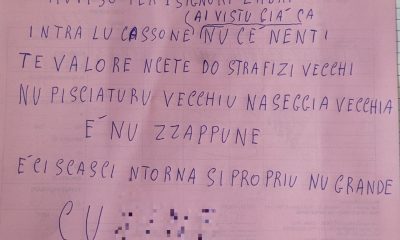 AVVISO PER I SIGNORI LADRI
(AI VISTU GIÁ CA
INTRA LU CASSONE NU CÉ NENTI
TE VALORE NCETE DO STRAFIZI VECCHI
NU PISCIATURU VECCHIU NA SEGGIA VECCHIA
É NU ZZAPPUNE
É CI SCASCI NTORNA SI PROPRIU NU GRANDE
CU